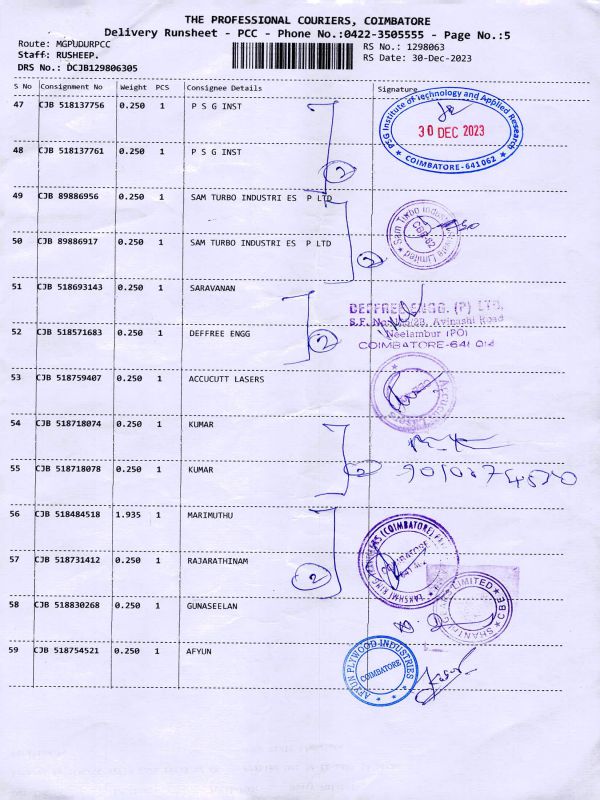 THE PROFESSIONAL COURIERS, COIMBATORE
Delivery Runsheet - PCC - Phone No.:0422-3505555 - Page No.:5
Route: MGPUDURPCC
Staff: RUSHEEP.
DRS No.: DCJB129806305
RS No.: 1298063
RS Date: 30-Dec-2023
S No Consignment No Weight PCS Consignee Details Signature
47 CJB 518137756 0.250 1 P S G INST
PSG Institute of Technology and Applied Research
30 DEC 2023
COIMBATORE-641062
48 CJB 518137761 0.250 1 P S G INST
2
49 CJB 89886956 0.250 1 SAM TURBO INDUSTRI ES P LTD
50 CJB 89886917 0.250 1 SAM TURBO INDUSTRI ES P LTD
2
Sam Turbo Industry Private Limited
51 CJB 518693143 0.250 1 SARAVANAN
DEFFREE ENGG. (P) LTD.
Avinashi Road
Neelambur (PO)
COIMBATORE-641 014
52 CJB 518571683 0.250 1 DEFFREE ENGG
2
53 CJB 518759407 0.250 1 ACCUCUTT LASERS
54 CJB 518718074 0.250 1 KUMAR
55 CJB 518718078 0.250 1 KUMAR
2
56 CJB 518484518 1.935 1 MARIMUTHU
57 CJB 518731412 0.250 1 RAJARATHINAM
2
(COIMBATORE)
COIMBATORE
58 CJB 518830268 0.250 1 GUNASEELAN
LIMITED
CBE
59 CJB 518754521 0.250 1 AFYUN
AFYUN PLYWOOD INDUSTRIES
COIMBATORE